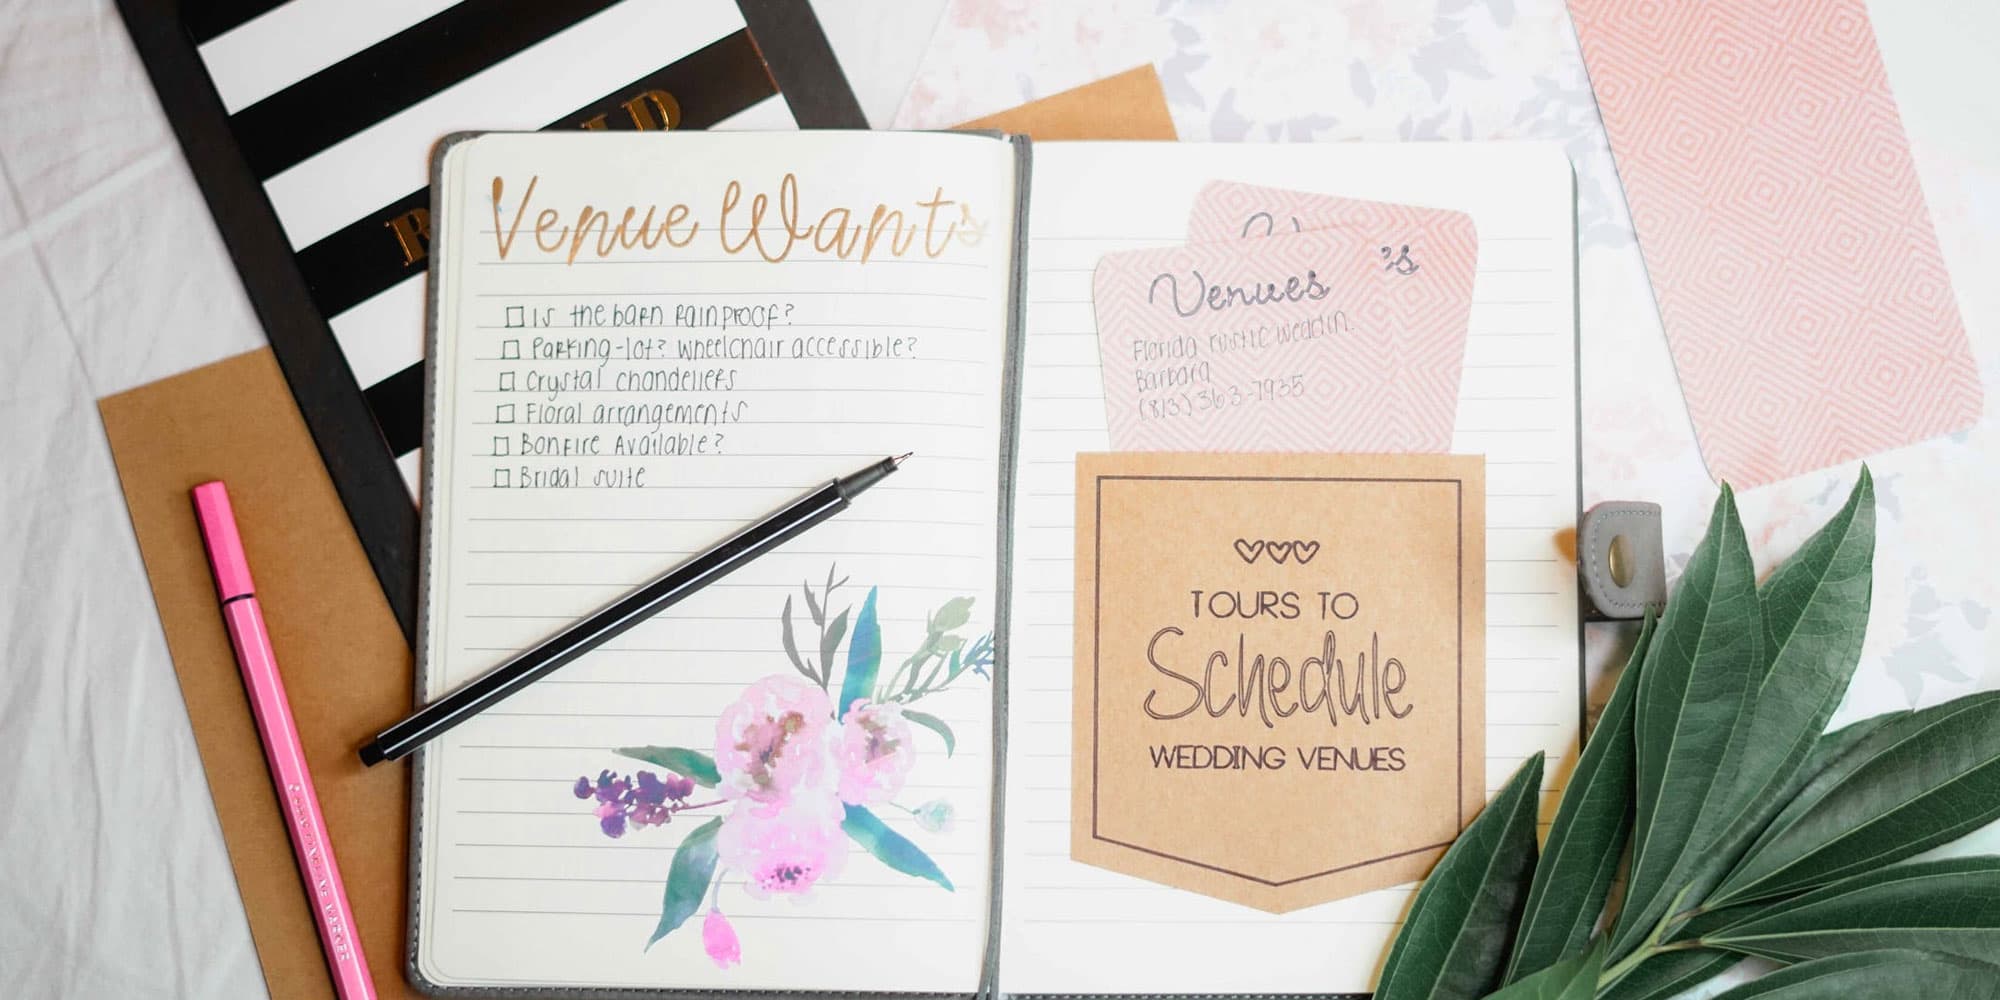 Venue Wants
Is the barn rainproof?
Parking-lot? wheelchair accessible?
Crystal chandeliers
Floral arrangements
Bonfire Available?
Bridal suite
Venues 's
Florida rustic weddin.
Barbara
(813) 363-7935
TOURS TO
Schedule
WEDDING VENUES